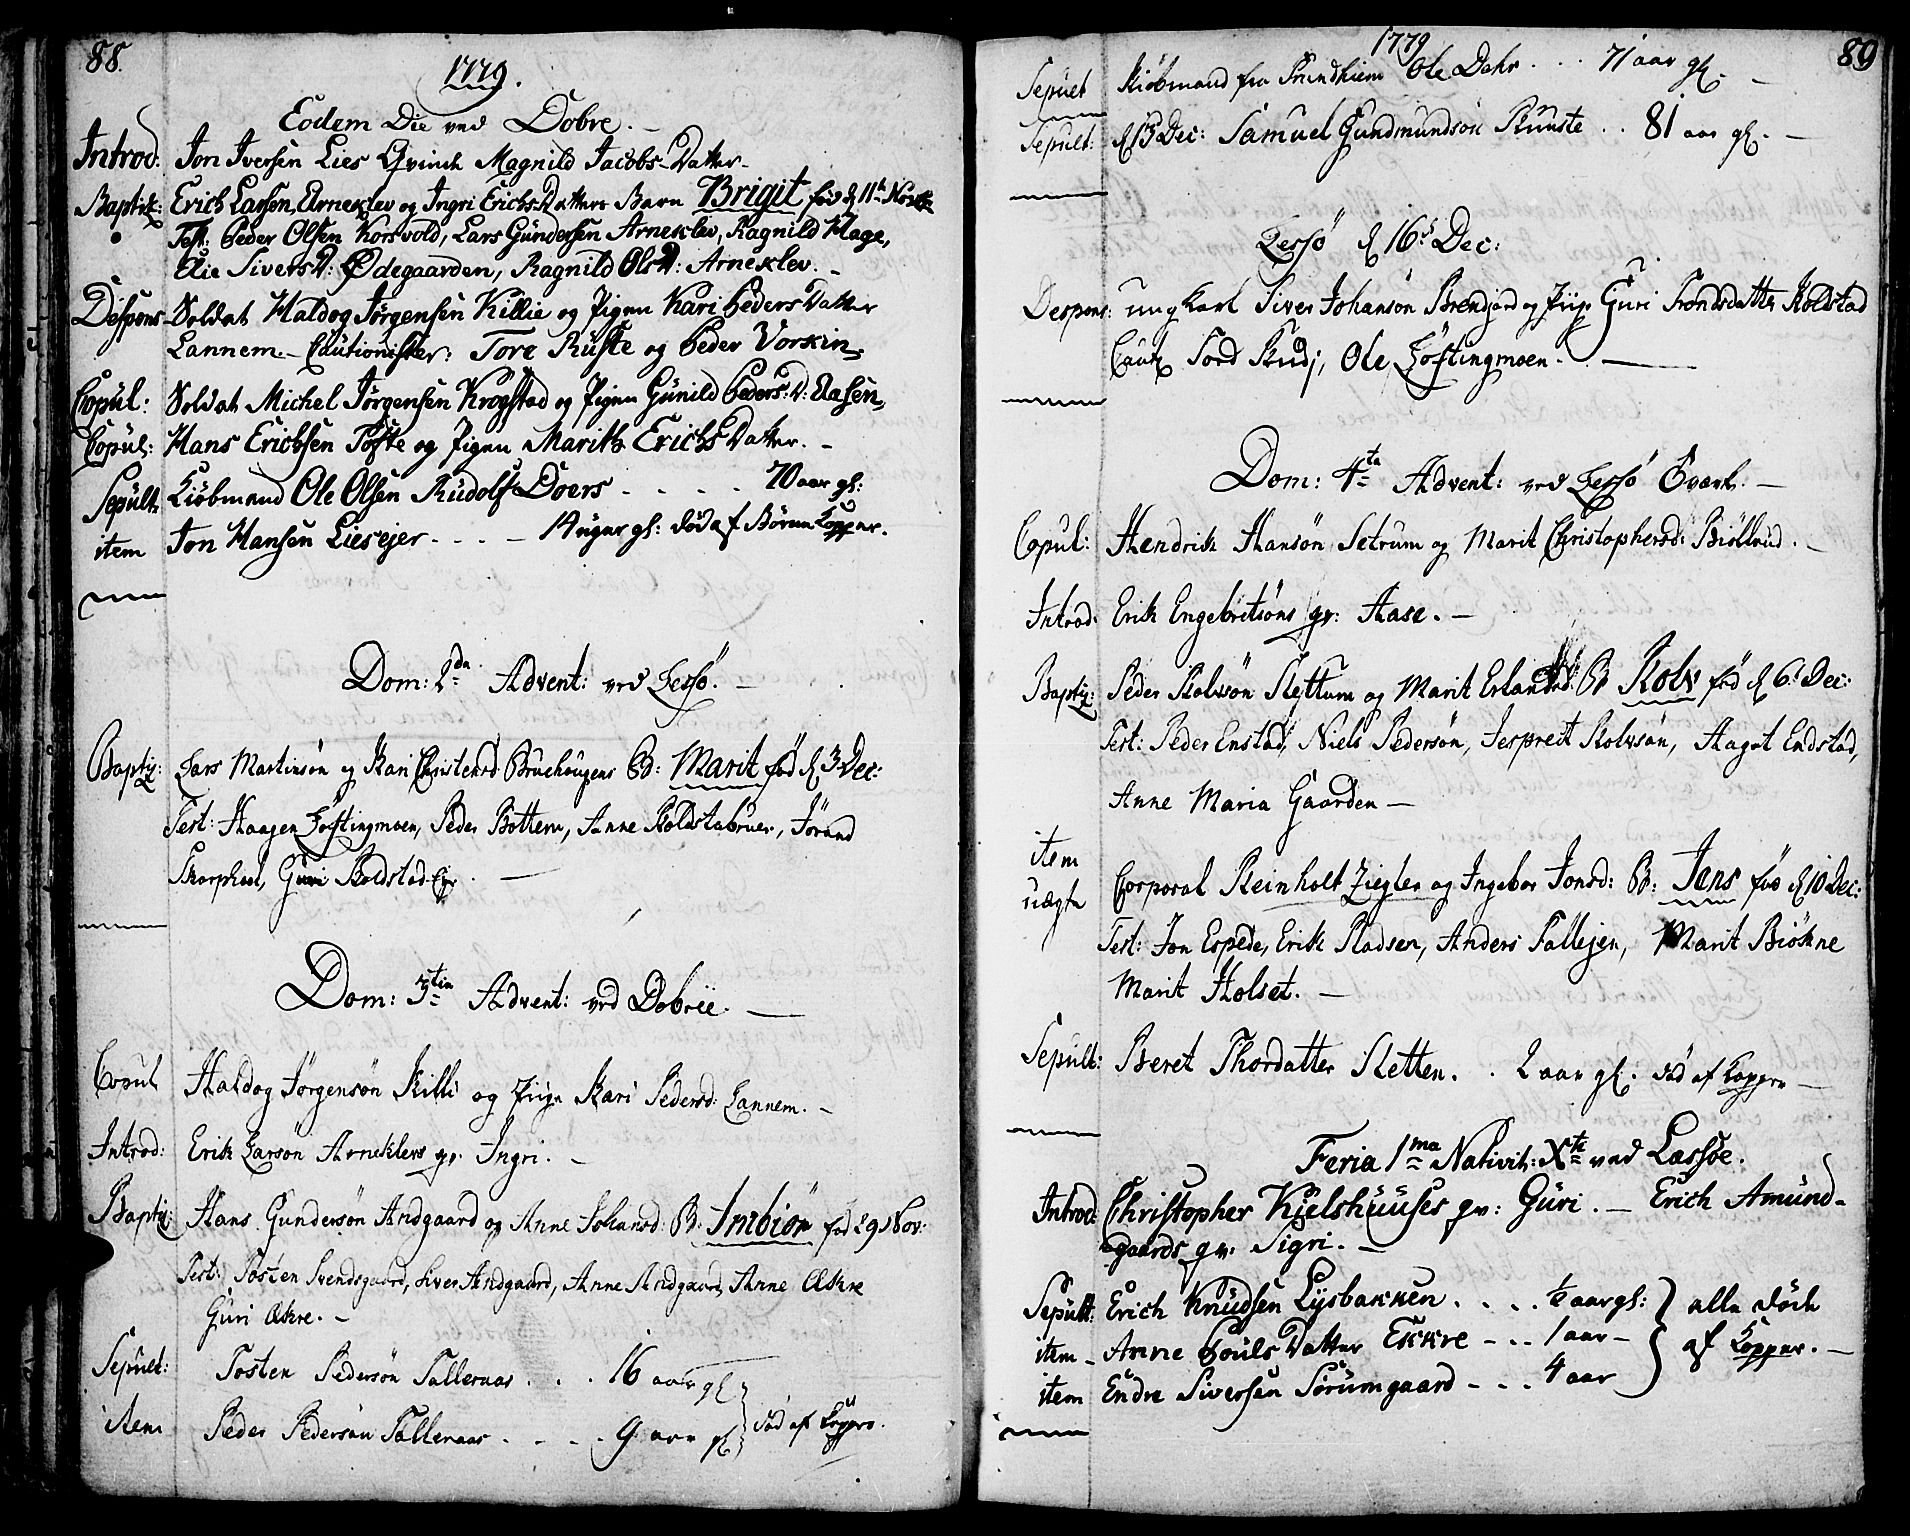 88.
1779.
Eodem Die ved Dobre.
Introd: Jon Iversen Lies Qvinde Magnild Jacobs-Datter
Baptiz: Erich Larsen Arneklev og Ingri Erichs Datters Barn Brigit fød d 11te Novbr
Test: Peder Olsen Korsvold, Lars Gundersen Arneklev, Ragnild Hage,
Elie Sivers D: Ødegaarden, Ragnild Ols D: Arneklev.
Despons Soldat Haldog Jørgensen Killie og Pigen Kari Peders Datter
Lannem. Cautionister: Tore Ruste og Peder Vorkin.
Copul: Soldat Michel Jørgensen Krogstad og Pigen Gunild Peders: D: Aasen,
Copul: Hans Erichsen Tofte og Pigen Marith Erichs Datter.
Sepult Kiøbmand Ole Olsen Rudolf Doers - - - - 70 aar gl:
item Jon Hansen Liesejer - - - - 14 uger gl: død af Børne Kopper.
Dom: 2da Advent: ved Lessø.
Baptiz: Lars Martinsøn og Kari Christensd Bruehougens B: Marit fød d 3 Dec:
Test: Haagen Løftingmoen, Peder Bottem, Anne Kolstabruer, Jørand
Skarphol, Guri Kolstad-Eje.
Dom: 3tia Advent: ved Dobree.
Copul Haldog Jørgensøn Killi og Piige Kari Pedersd: Lannem.
Introd: Erik Larsøn Arneklevs qv. Ingri.
Baptiz: Hans Gundersøn Andgaard og Anne Johansd: B: Imbiør fød 29 Nov:
Test: Tosten Svendsgaard, Siver Andgaard, Anne Andgaard, Anne Ækre
Guri Ækre.
Sepult: Tosten Pedersøn Talleraas . . . 16 aar gl
item Peder Pedersøn Talleraas . . . . 9 aar gl død af Kopper.
1779
89
Sepult Kiøbmand fra Trundhiem Ole Dahr . . . 71 aar gl.
Sepult: d 13 Dec: Samuel Gundmundsøn Ruuste . . 81 aar gl.
Lessø d 16 Dec:
Despons: ung Karl Siver Johansøn Brendjord og Piige Guri Trondsdatter Kolstad
Caut: Tord Rudj, Ole Løftingmoen.
Dom: 4ta Advent: ved Lessø Værk.
Copul: Hendrik Hansøn Setrum og Marit Christophersd: Biøllud.
Introd: Erik Engebritsøns qv: Aase.
Baptiz: Peder Rolvsøn Slettum og Marit Erlandsd: B Rolv fød d 6 Dec:
Test: Peder Enstad, Niels Pedersøn, Jespreit Rolvsøn, Aagot Endstad,
Anne Maria Gaarden
item
uægte Corporal Reinholt Ziegler og Ingebor Jonsd: B: Jens fød d 10 Dec:
Test: Jon Espede, Erik Pladsen, Anders Tallejen, Marit Biøkne
Marit Holset.
Sepult: Beret Thordatter Sletten. . 2 aar gl. død af Kopper
Feria 1ma Nativit: Xti ved Lessøe.
Introd: Christopher Kjelshuuses qv: Guri. Erich Amund-
gaards qv. Sigri.
Sepult: Erich Knudsen Lysbakken. . . . ½ aar gl: alle døde
item Anne Pouls Datter Ekkre - - - 1 aar af Kopper.
item Endre Siversen Sørumgaard - - - 4 aar